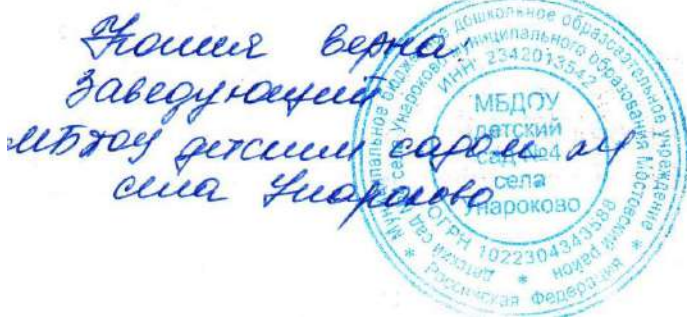 Копия верна:
Заведующий
МБДОУ детским садом №4
села Унароково
Муниципальное бюджетное дошкольное образовательное учреждение
детский сад №4 села Унароково муниципального образования Мостовский район
Российская Федерация
ИНН 2342013542
ОГРН 1022304343588
МБДОУ
детский
сад №4
села
Унароково